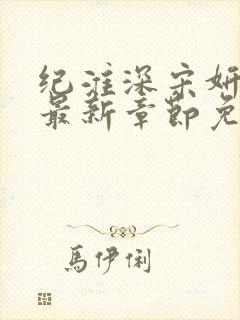 纪淮深宋妍
最新章节免
馬伊俐